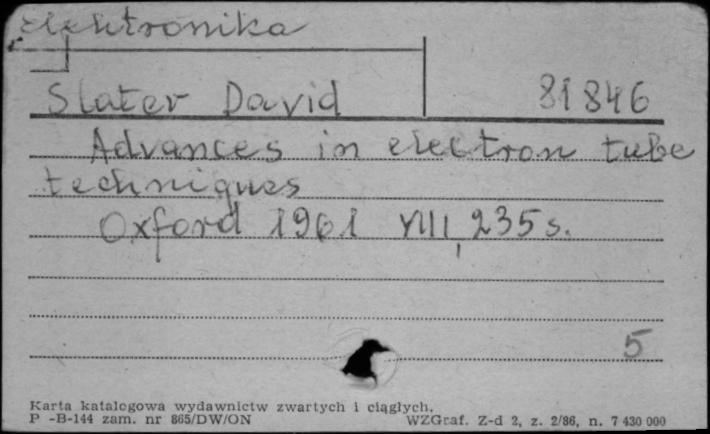 Elektronika
Slater David 81846
Advances in electron tube
techniques
Oxford 1961 VIII, 235 s.
5
Karta katalogowa wydawnictw zwartych i ciągłych.
P -B-144 zam. nr 865/DW/ON WZGraf. Z-d 2, z. 2/86, n. 7 430 000